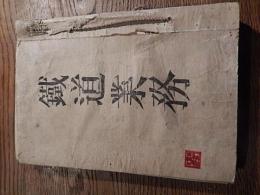 鐵道業務